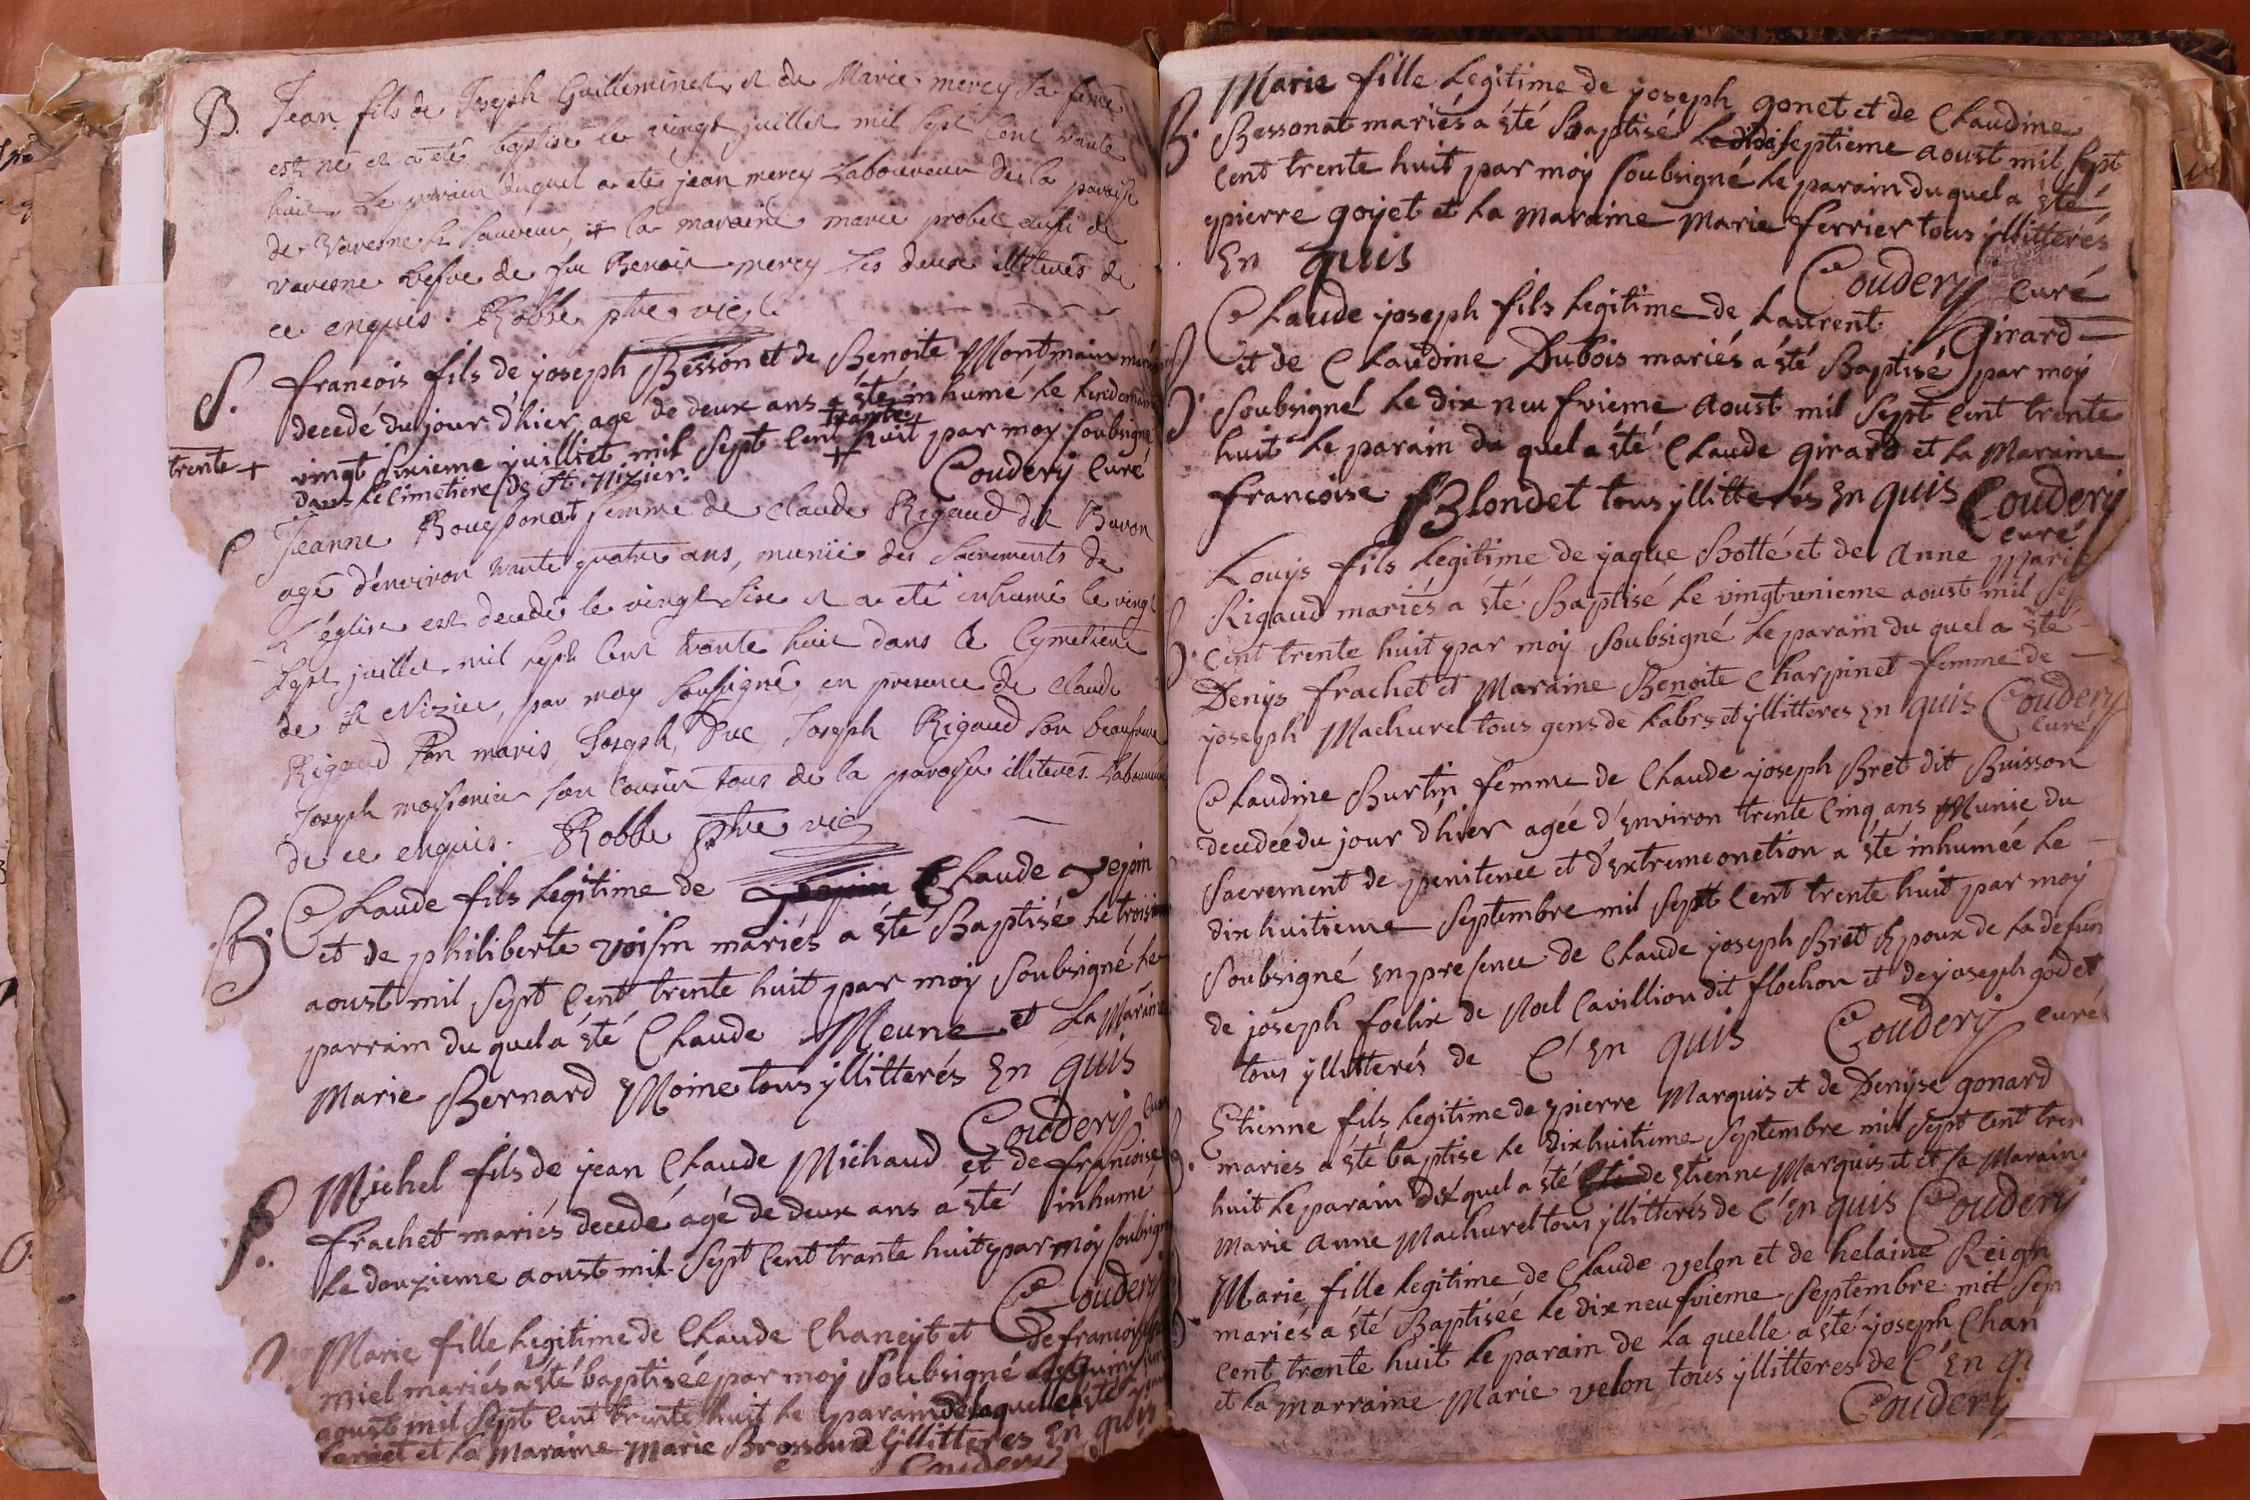 B. Jean fils de Joseph Guilleminet et de Marie mercy sa feme
est né et a eté baptisé le vingt juillet mil sept cent trante
huit. Le parain duquel a eté jean mercy Laboureur de la paroisse
de Varesne St Sauveur, et la maraine marie probet aussi de
varesne vefve de feu Benoit mercy les deux illiterés de
ce enquis. Robbe ptre vic
S. francois fils de joseph Besson et de Benoite Montmain mariés
decedé du jour d'hier, agé de deux ans a été inhumé le lendemain
trente + vingt sixieme juilliet mil sept cent trante huit par moy soubsigné
dans le Cimetiere de St. Nizier. Coudery Curé
S Jeanne femme de Claude Rigaud dit Buron
agé d'environ trante quatre ans, muniie des Sacrements de
L'église est decedé le vingt sixe et a eté inhumé le vingt
Sept juillet mil sept cent trante huit dans le Cymetiere
de St Nizier, par moy soussigné, en presence de Claude
Rigaud son maris, Joseph Duc, Joseph Rigaud son beaufrere
Joseph moissonier son cousin tous de la paroisse illiterés Laboureurs
de ce enquis. Robbe ptre vic
B. Claude fils legitime de Claude Vejoin
et de philiberte voisin mariés a été Baptisé le troisieme
aoust mil sept cent trente huit par moy soubsigné le
parrain du quel a été Claude Meune et la Maraine
Marie Bernard Moine tous yllitterés En quis
Coudery Curé
S. Michel fils de jean Claude Michaud et de francoise
frachet mariés decedé agé de deux ans a été inhumé
le douzieme aoust mil sept cent trante huit par moy soubsigné
Coudery
Marie fille legitime de Claude Chaneyt et de francoise
miel mariés a été baptisée par moy soubsigné le
aoust mil sept cent trente huit le parain de laquelle a été
et la Maraine Marie yllitteres En quis
Coudery
B. Marie fille legitime de joseph gonet et de Claudine
Bessonat mariés a été Baptisé le dix septieme aoust mil sept
cent trente huit par moy soubsigné le parain du quel a été
pierre goyet et la maraine Marie ferrier tous yllitterés
En quis Coudery Curé
Claude joseph fils legitime de Laurent Girard
B. et de Claudine Dubois mariés a été Baptisé par moy
soubsigné le dix neufvieme aoust mil sept cent trente
huit le parain du quel a été Claude girard et la Maraine
francoise Blondet tous yllitterés En quis Coudery
curé
Louys fils legitime de yaque Botté et de Anne Marie
Rigaud mariés a été Baptisé le vingt unieme aoust mil sep
B. cent trente huit par moy soubsigné le parain du quel a été
Denys frachet et Maraine Benoite Charpinet femme de
joseph Machurel tous gens de Labrs et yllitteres En quis Coudery
Curé
Claudine Burtin femme de Claude joseph Bret dit Buisson
decedée du jour d'hier agée d'environ trente Cinq ans Munie du
Sacrement de penitence et d'Extremeonction a été inhumée le
dix huitieme Septembre mil sept cent trente huit par moy
soubsigné En presence de Claude joseph Bret Epoux de la defun
de joseph foelix de Noel Cavillion dit flochon et de joseph godet
tous yllitterés de C'En quis Coudery curé
Etienne fils legitime de pierre Marquis et de Denyse gonard
B. mariés a été baptisé le dixhuitieme Septembre mil sept cent tren
huit le parain du quel a été de Etienne Marquis et la Maraine
Marie Anne Machurel tous yllitterés de C'En quis Coudery
Marie fille legitime de Claude velon et de helaine
B. mariés a été Baptisée le dixneufvieme Septembre mil sep
cent trente huit le parain de la quelle a été joseph Chan
et la marraine Marie velon tous yllitteres de C'En q
Coudery